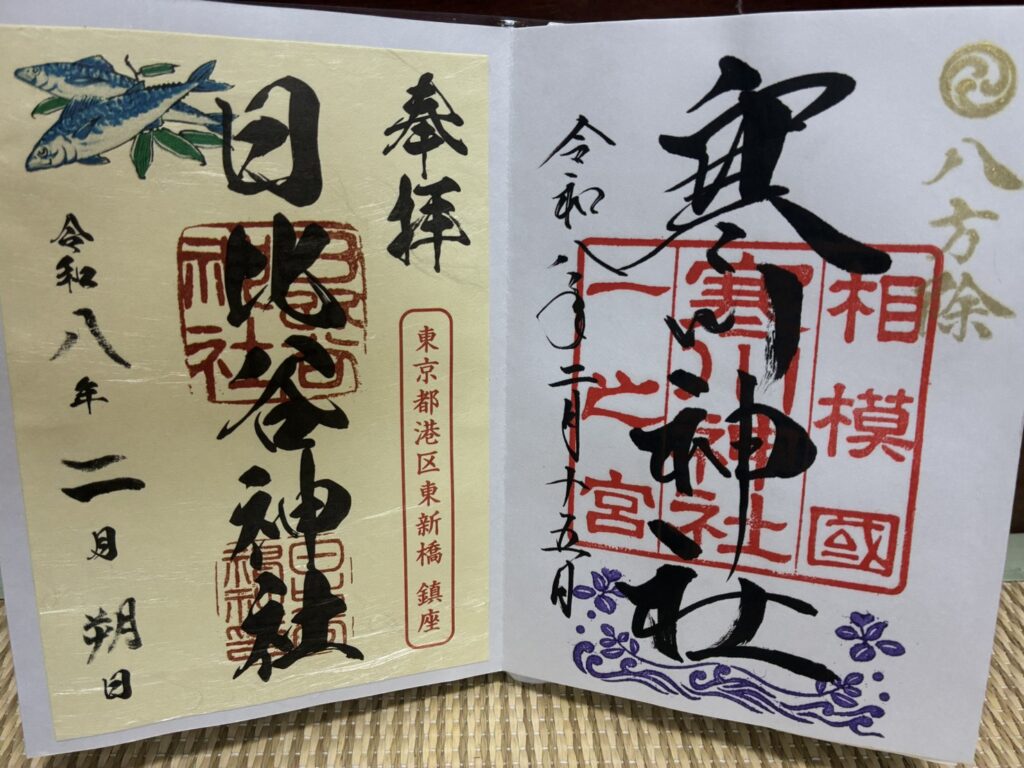 八方除
寒川神社
相模國
寒川神社
一之宮
令和八年二月十五日
奉拝
東京都港区東新橋 鎮座
日比谷神社
令和八年二月朔日